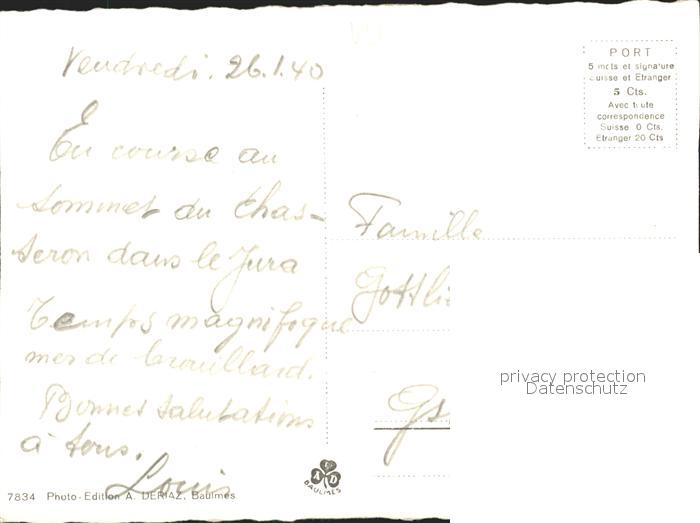 Vendredi. 26.1.40
En course au
sommet du Chas-
seron dans le Jura
Temps magnifique
mer de brouillard.
Bonnes salutations
à tous.
Louis
7834 Photo-Edition A. DERIAZ, Baulmes
A D
BAULMES
PORT
5 mots et signature
Suisse et Etranger
5 Cts.
Avec toute
correspondence
Suisse 0 Cts.
Etranger 20 Cts
Famille
Gottli
Gs
privacy protection
Datenschutz